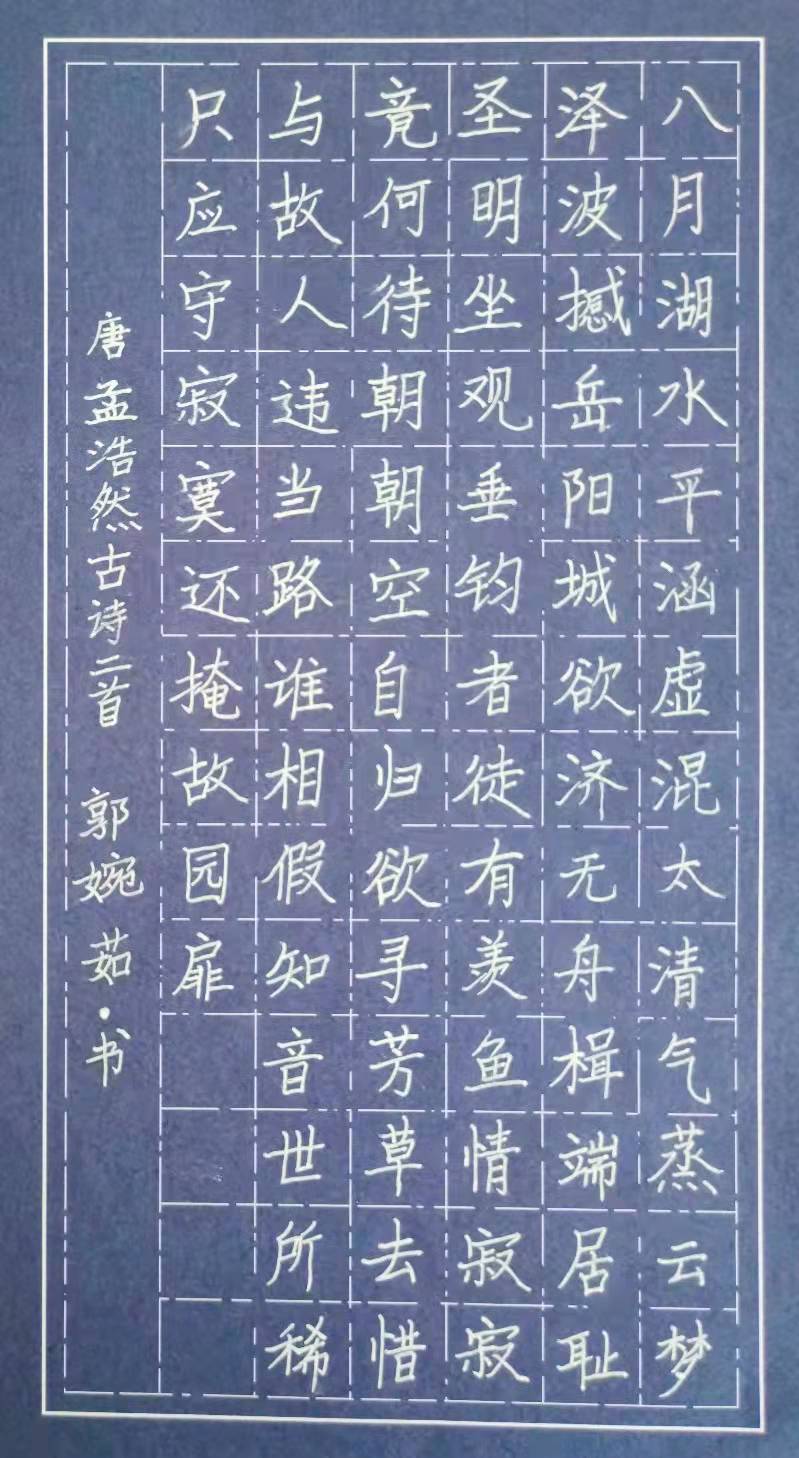 八月湖水平涵虚混太清气蒸云梦
泽波撼岳阳城欲济无舟楫端居耻
圣明坐观垂钓者徒有羡鱼情寂寂
竟何待朝朝空自归欲寻芳草去惜
与故人违当路谁相假知音世所稀
只应守寂寞还掩故园扉
唐孟浩然古诗二首 郭婉茹·书